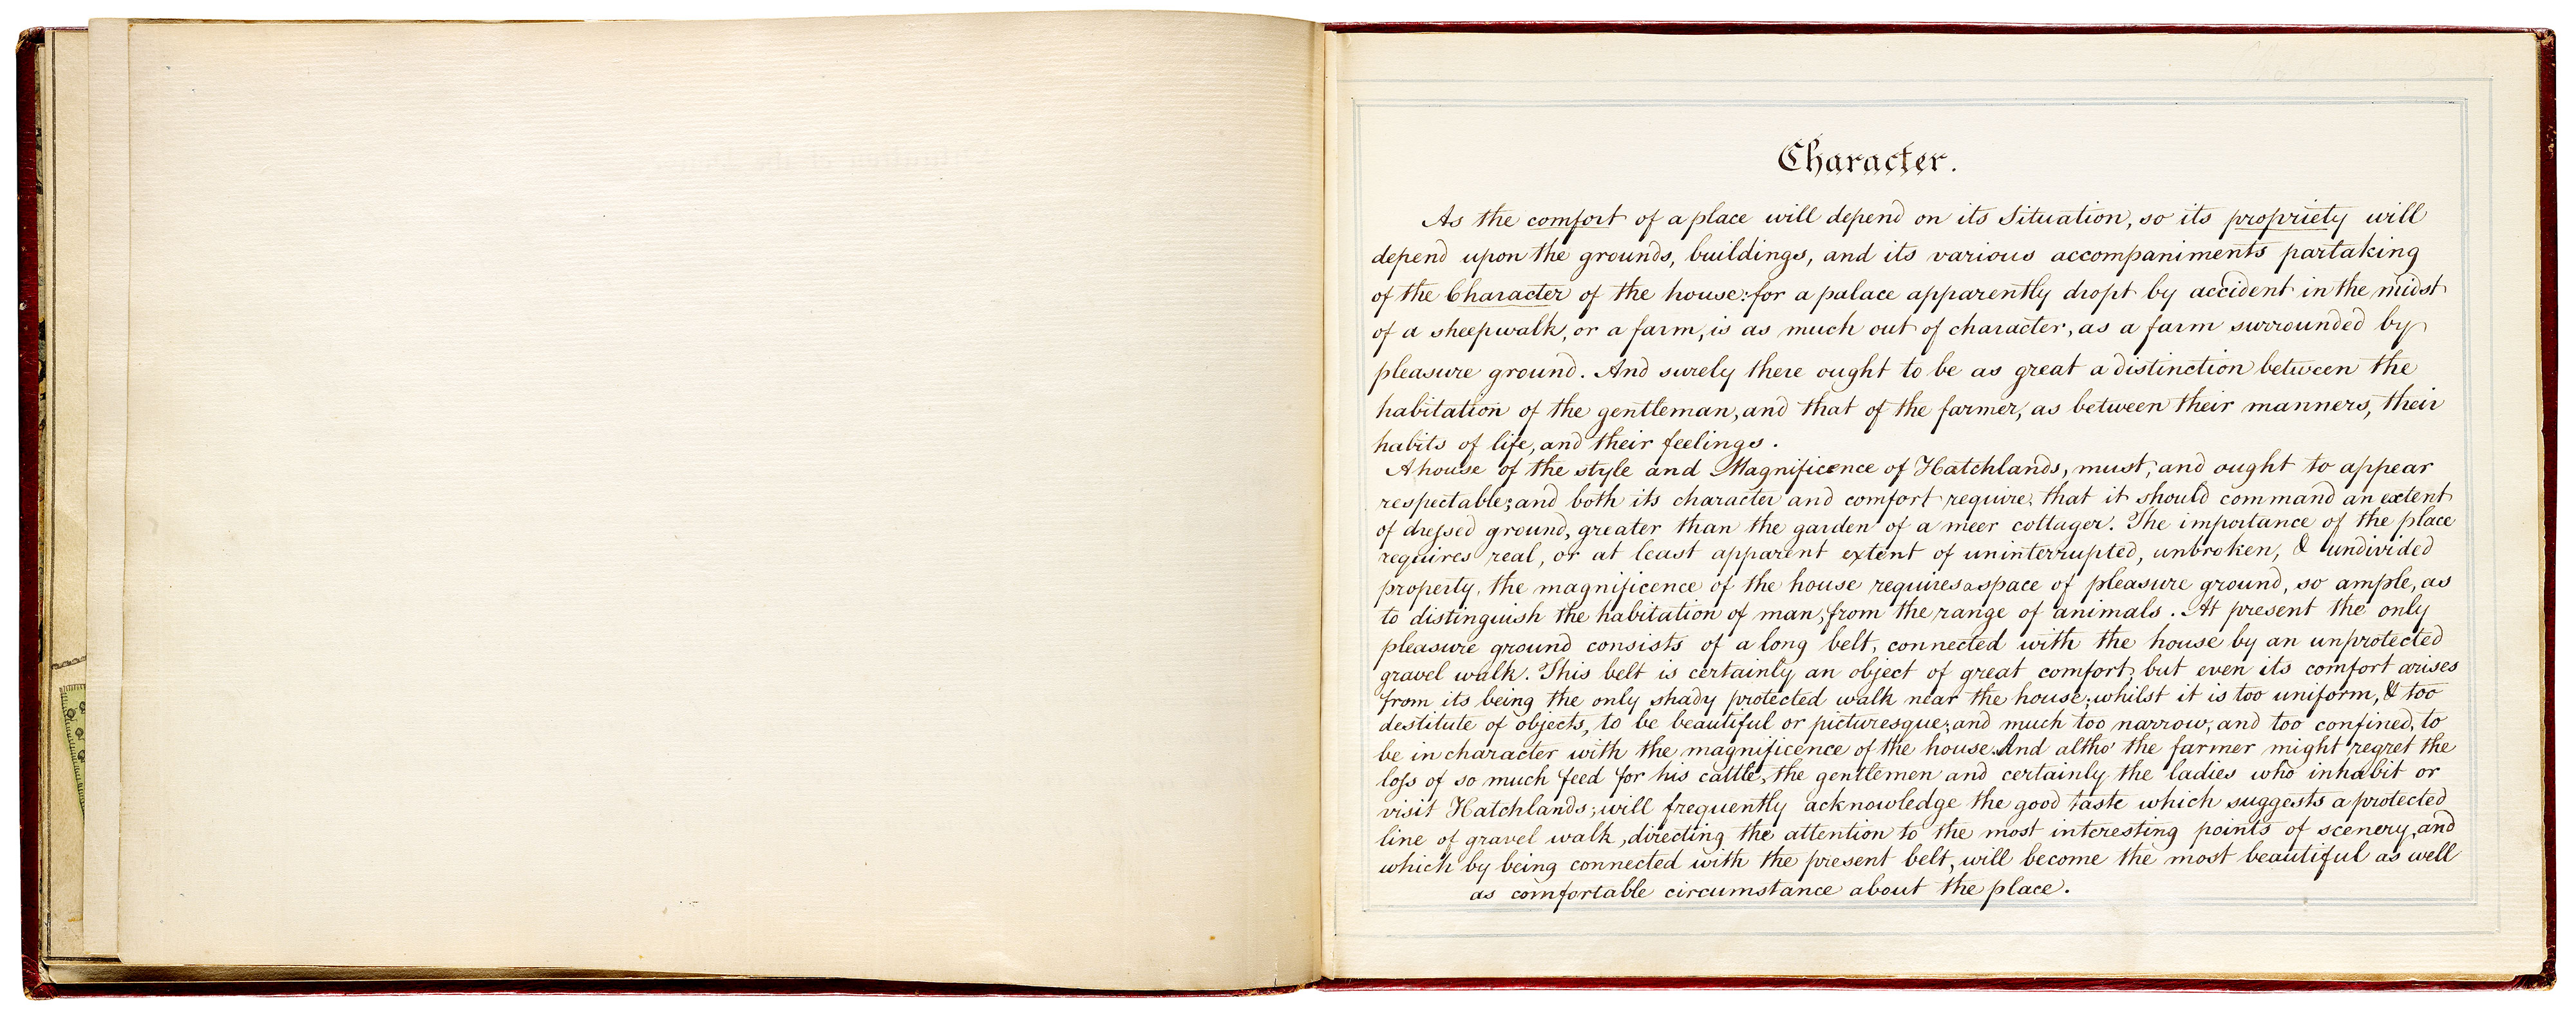 Character.
As the comfort of a place will depend on its Situation, so its propriety will
depend upon the grounds, buildings, and its various accompaniments partaking
of the Character of the house: for a palace apparently dropt by accident in the midst
of a sheepwalk, or a farm, is as much out of character, as a farm surrounded by
pleasure ground. And surely there ought to be as great a distinction between the
habitation of the gentleman, and that of the farmer, as between their manners, their
habits of life, and their feelings.
A house of the style and Magnificence of Hatchlands, must, and ought to appear
respectable; and both its character and comfort require, that it should command an extent
of dressed ground, greater than the garden of a meer cottager. The importance of the place
requires real, or at least apparent extent of uninterrupted, unbroken, & undivided
property, the magnificence of the house requires a space of pleasure ground, so ample, as
to distinguish the habitation of man, from the range of animals. At present the only
pleasure ground consists of a long belt, connected with the house by an unprotected
gravel walk. This belt is certainly an object of great comfort, but even its comfort arises
from its being the only shady protected walk near the house; whilst it is too uniform, & too
destitute of objects, to be beautiful or picturesque; and much too narrow, and too confined, to
be in character with the magnificence of the house. And altho' the farmer might regret the
loss of so much feed for his cattle, the gentlemen and certainly the ladies who inhabit or
visit Hatchlands; will frequently acknowledge the good taste which suggests a protected
line of gravel walk, directing the attention to the most interesting points of scenery, and
which by being connected with the present belt, will become the most beautiful as well
as comfortable circumstance about the place.